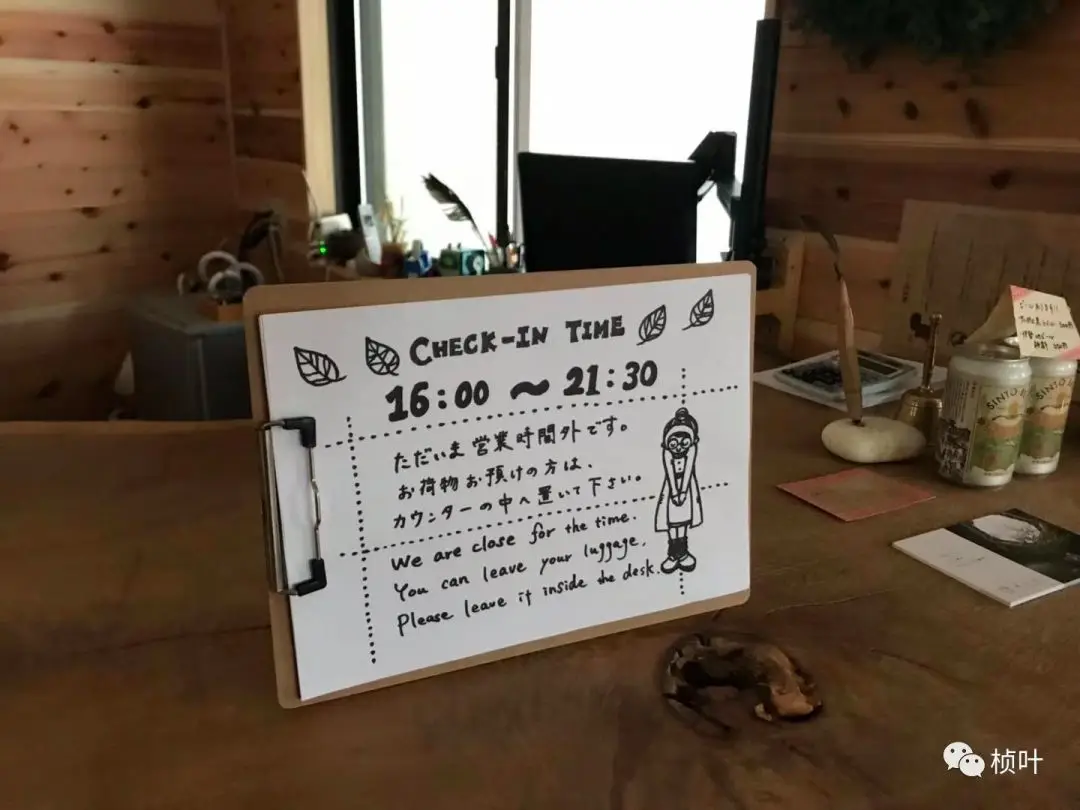 CHECK-IN TIME
16:00 〜 21:30
ただいま営業時間外です。
お荷物お預けの方は、
カウンターの中へ置いて下さい。
We are close for the time.
You can leave your luggage.
Please leave it inside the desk.
SINTO
桢叶